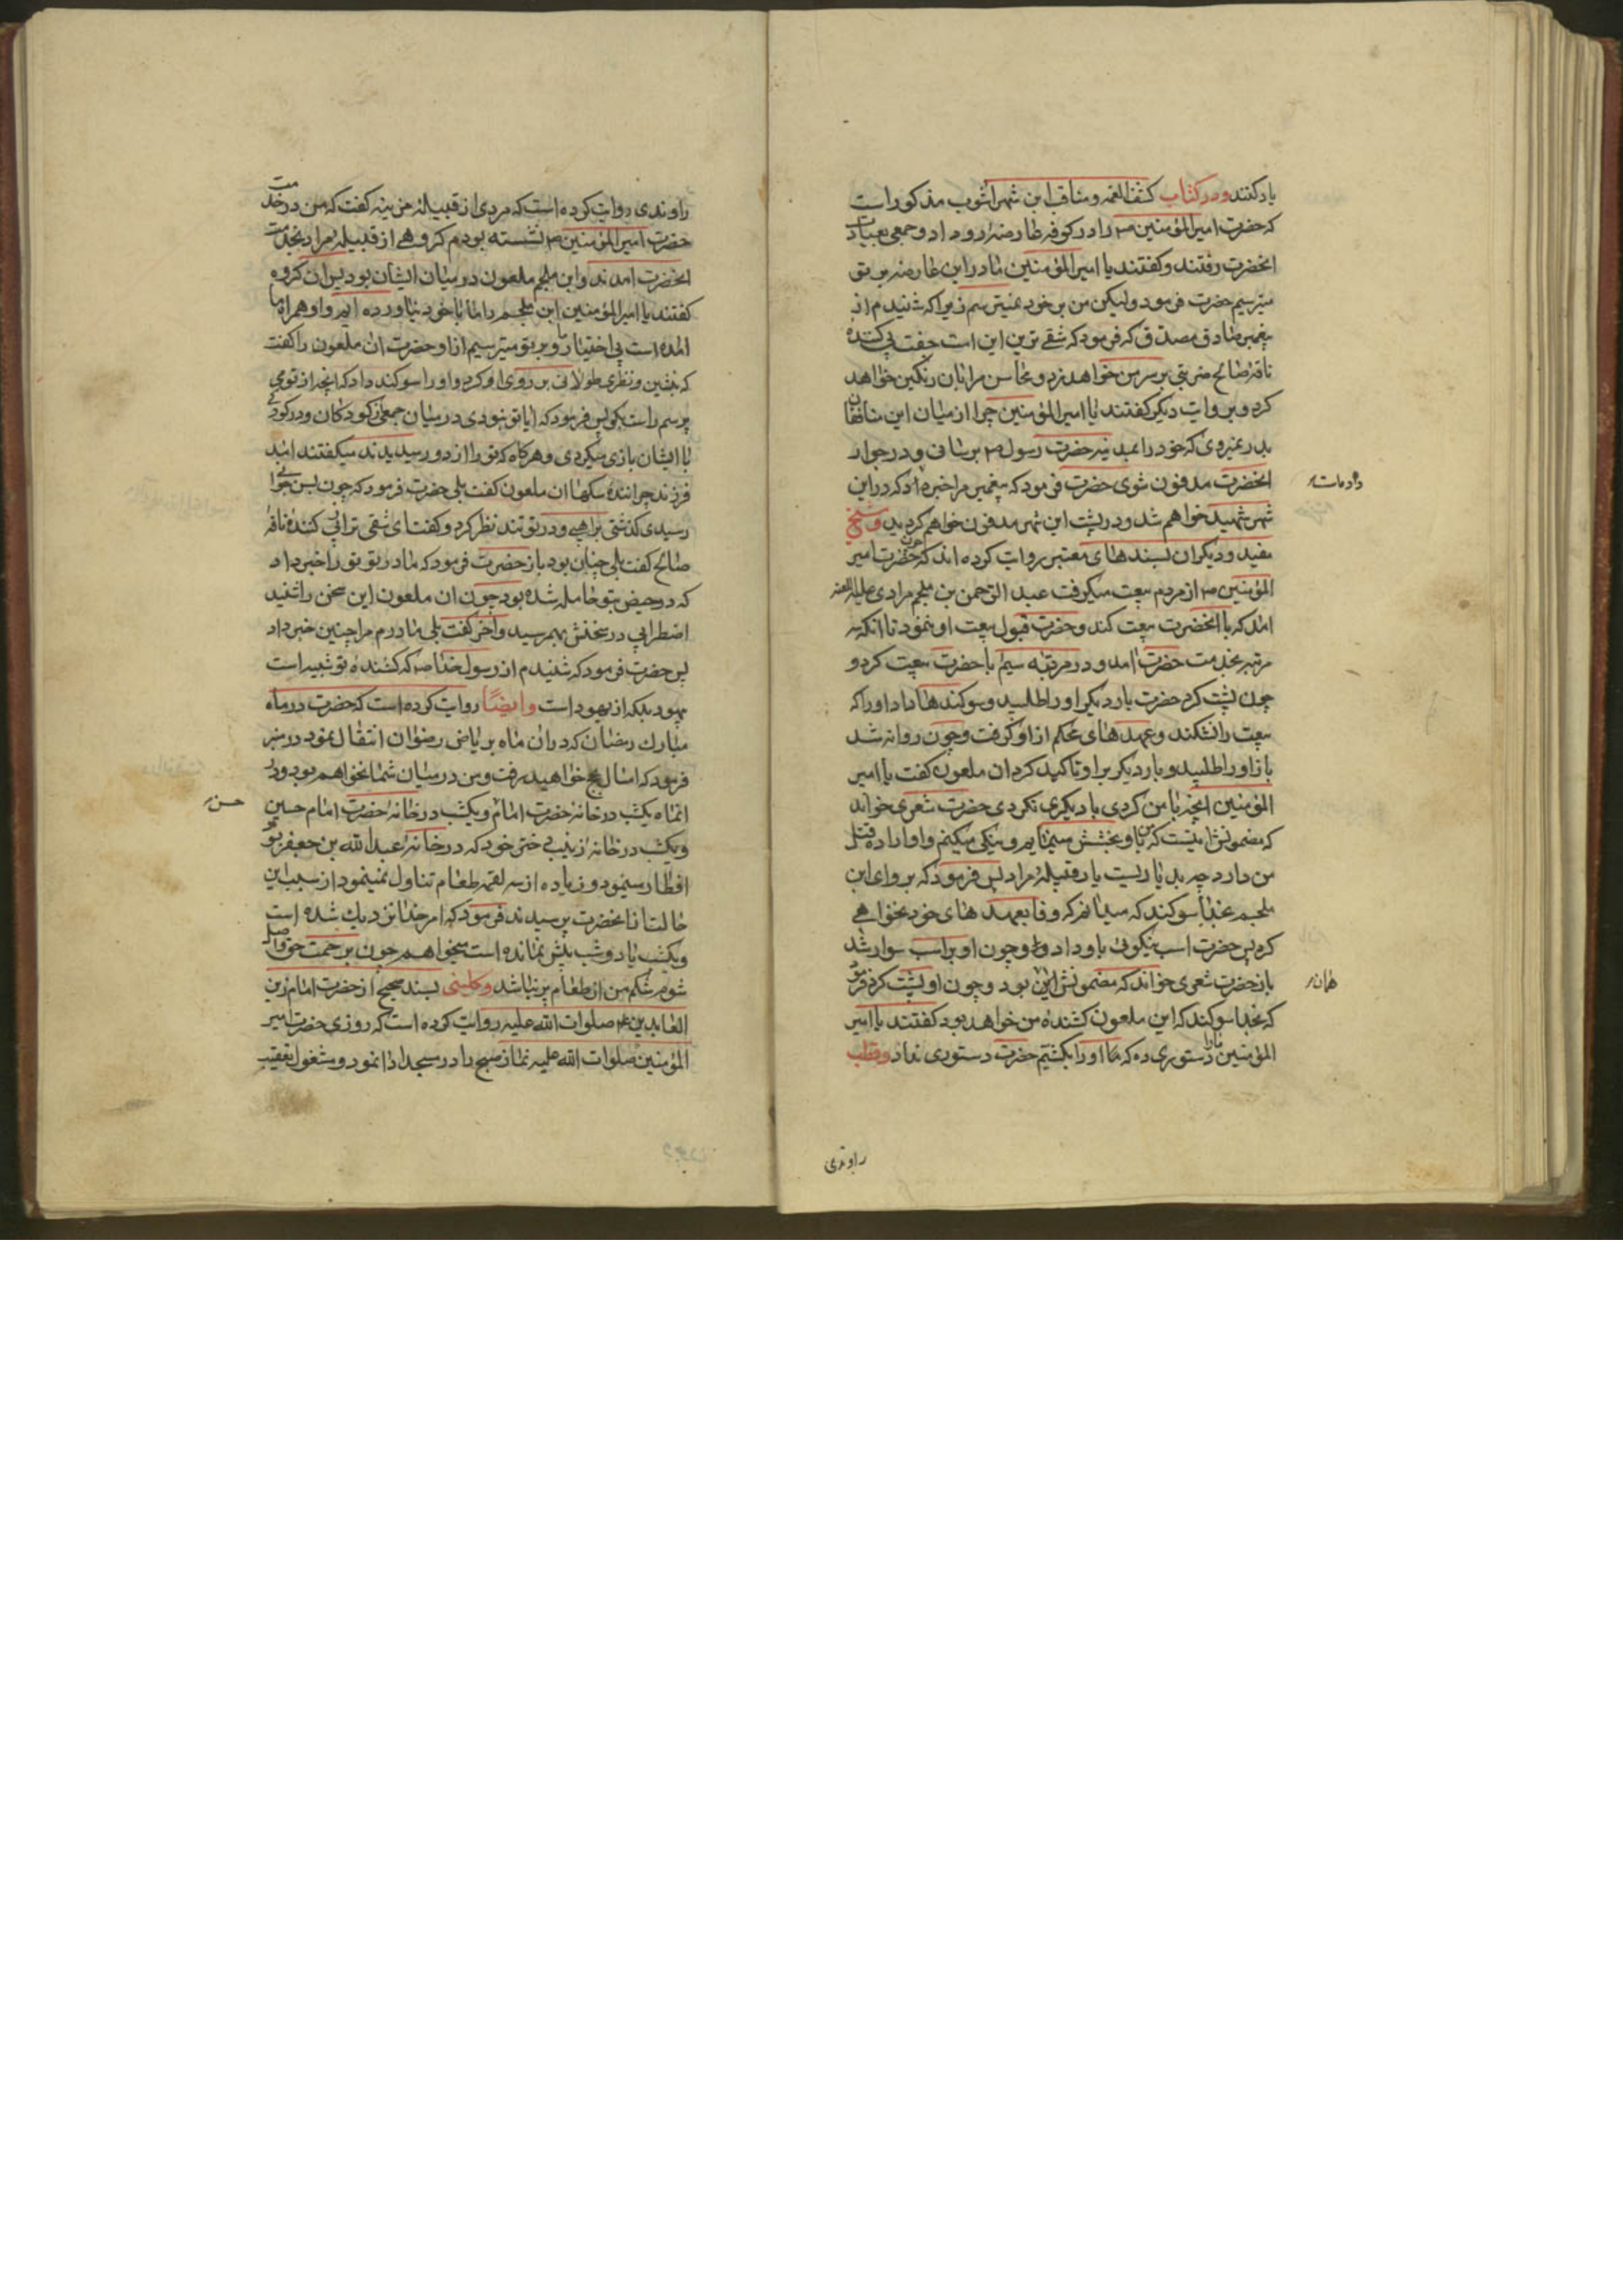 یاد کنند و در کتاب کشف الغمه و مناقب ابن شهراشوب مذکور است
که حضرت امیرالمؤمنین ع را در کوفه عارضه رو داد و جمعی بعیادت
انحضرت رفتند و کفتند یا امیرالمؤمنین ما در این عارضه بر تو
میترسیم حضرت فرمود ولیکن من بر خود نمیترسم زیرا که شنیدم از
پیغمبر صادق مصدق که فرمود که شقی ترین این امت جفت پی کننده
ناقهٔ صالح ضربتی بر سر من خواهد زد و محاسن مرا بان رنکین خواهد
کرد و بروایت دیکر کفتند یا امیرالمؤمنین چرا از میان این منافقان
بدر نمیروی که خود را بمدینه حضرت رسول ص برسانی و در جوار
انحضرت مدفون شوی حضرت فرمود که پیغمبر مرا خبر داد که در این
شهر شهید خواهم شد و در پشت این شهر مدفون خواهم کردید و شیخ
مفید و دیکران بسندهای معتبر روایت کرده اند که چون حضرت امیر
المؤمنین ع از مردم بیعت میکرفت عبد الرحمن بن ملجم مرادی علیه اللعنه
امد که با انحضرت بیعت کند و حضرت قبول بیعت او ننمود تا انکه سه
مرتبه بخدمت حضرت امد و در مرتبه سیم با حضرت بیعت کرد و
چون پشت کرد حضرت بار دیکر او را طلبید و سوکندها داد او را که
بیعت را نشکند و عهدهای محکم از او کرفت و چون روانه شد
باز او را طلبید و بار دیکر بر او تاکید کرد ان ملعون کفت یا امیر
المؤمنین انچه با من کردی با دیکری نکردی حضرت شعری خواند
که مضمونش اینست که من باو بخشش مینمایم و نیکی میکنم و او اراده قتل
من دارد چه بد یاریست یار قبیلهٔ مراد پس فرمود که برو ای ابن
ملجم بخدا سوکند که میدانم که وفا بعهدهای خود نخواهی
کرد پس حضرت اسب نیکوئی باو داد و چون او بر اسب سوار شد
باز حضرت شعری خواند که مضمونش این بود و چون او پشت کرد فرمود
که بخدا سوکند که این ملعون کشندهٔ من خواهد بود کفتند یا امیر
المؤمنین ما را دستوری ده که ما او را بکشیم حضرت دستوری نداد و قطب
همان
راوندی
راوندی روایت کرده است که مردی از قبیلهٔ مزینه کفت که من در خدمت
حضرت امیرالمؤمنین ع نشسته بودم کروهی از قبیلهٔ مراد بخدمت
انحضرت امدند و ابن ملجم ملعون در میان ایشان بود پس ان کروه
کفتند یا امیرالمؤمنین ابن ملجم را ما با خود نیاورده ایم و او همراه ما
امده است بی اختیار ما و بر تو میترسیم از او حضرت ان ملعون را کفت
که بنشین و نظری طولانی بر روی او کرد و او را سوکند داد که انچه از تو می
پرسم راست بکو پس فرمود که ایا تو نبودی در میان جمعی از کودکان و در کودکی
با ایشان بازی میکردی و هرکاه که تو را از دور میدیدند میکفتند امد
فرزند چرانندهٔ سکها ان ملعون کفت بلی حضرت فرمود که چون بسن جوانی
رسیدی کذشتی براهبی و در تو تند نظر کرد و کفت ای شقی تر از پی کنندهٔ ناقهٔ
صالح کفت بلی چنان بود باز حضرت فرمود که مادر تو تو را خبر داد
که در حیض بتو حامله شده بود چون ان ملعون این سخن را شنید
اضطرابی در سخنش بهم رسید و اخر کفت بلی مادرم مرا چنین خبر داد
پس حضرت فرمود که شنیدم از رسول خدا ص که کشندهٔ تو شبیه است
بیهود بلکه از یهود است و ایضا روایت کرده است که حضرت در ماه
مبارک رمضان که در ان ماه بریاض رضوان انتقال نمود در منبر
فرمود که امسال بحج خواهید رفت و من در میان شما نخواهم بود و در
انماه یکشب در خانهٔ حضرت امام حسن و یکشب در خانهٔ حضرت امام حسین
و یکشب در خانهٔ زینب دختر خود که در خانهٔ عبدالله بن جعفر بود
افطار مینمود و زیاده از سه لقمه طعام تناول نمینمود از سبب این
حالت از انحضرت پرسیدند فرمود که امر خدا نزدیک شده است
و یکشب یا دو شب بیش نمانده است میخواهم چون برحمت حق واصل
شوم شکم من از طعام پر نباشد و کلینی بسند صحیح از حضرت امام زین
العابدین ع صلوات الله علیه روایت کرده است که روزی حضرت امیر
المؤمنین صلوات الله علیه نماز صبح را در مسجد ادا نمود و مشغول تعقیب